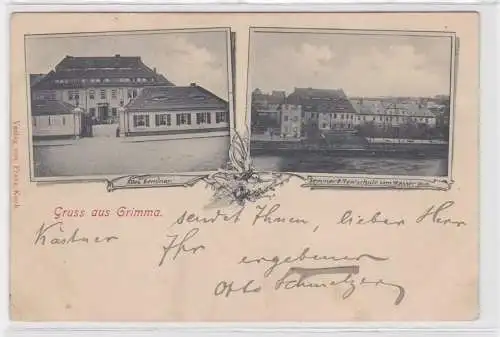 Verlag von Franz Koch
Altes Seminar
Seminar & Realschule vom Wasser aus.
Gruss aus Grimma.
sendet Ihnen, lieber Herr
Kästner
Ihr ergebener
Otto Schmelzer